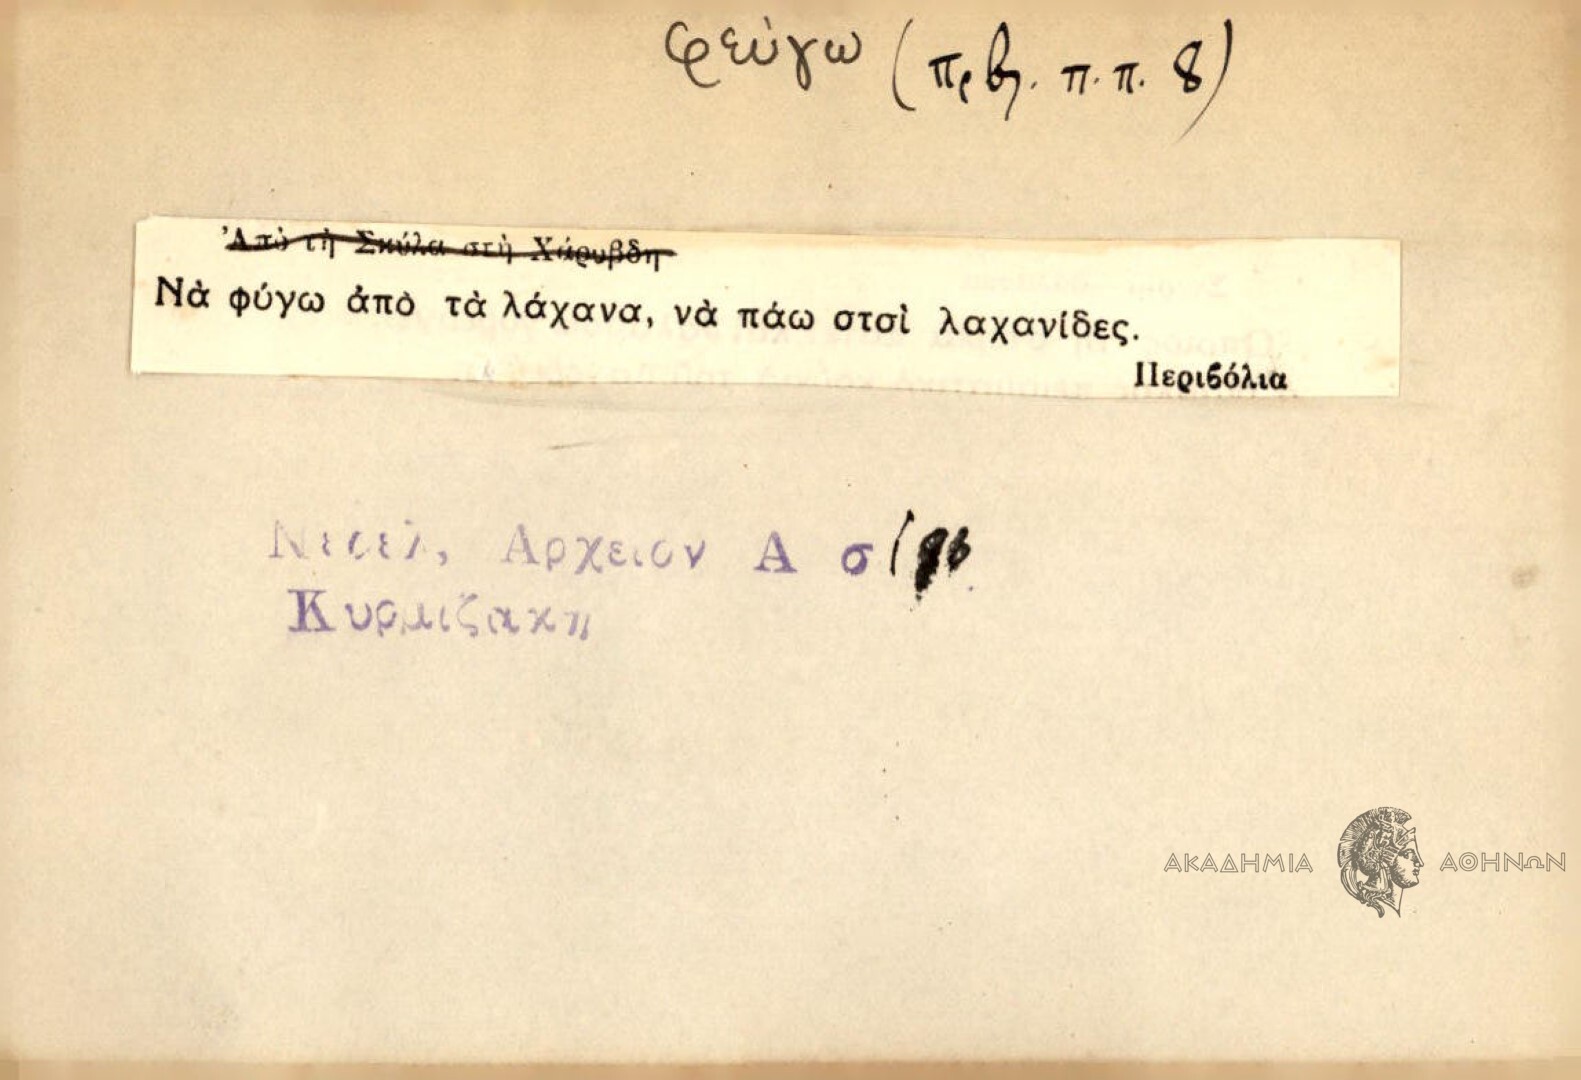 φεύγω (πρβλ. π.π. 8)
Ἀπὸ τὴ Σκύλα στὴ Χάρυβδη
Νὰ φύγω ἀπὸ τὰ λάχανα, νὰ πάω στσὶ λαχανίδες.
Περιβόλια
Αρχειον Α σ
Κυρμιζακη
ΑΚΑΔΗΜΙΑ ΑΘΗΝΩΝ